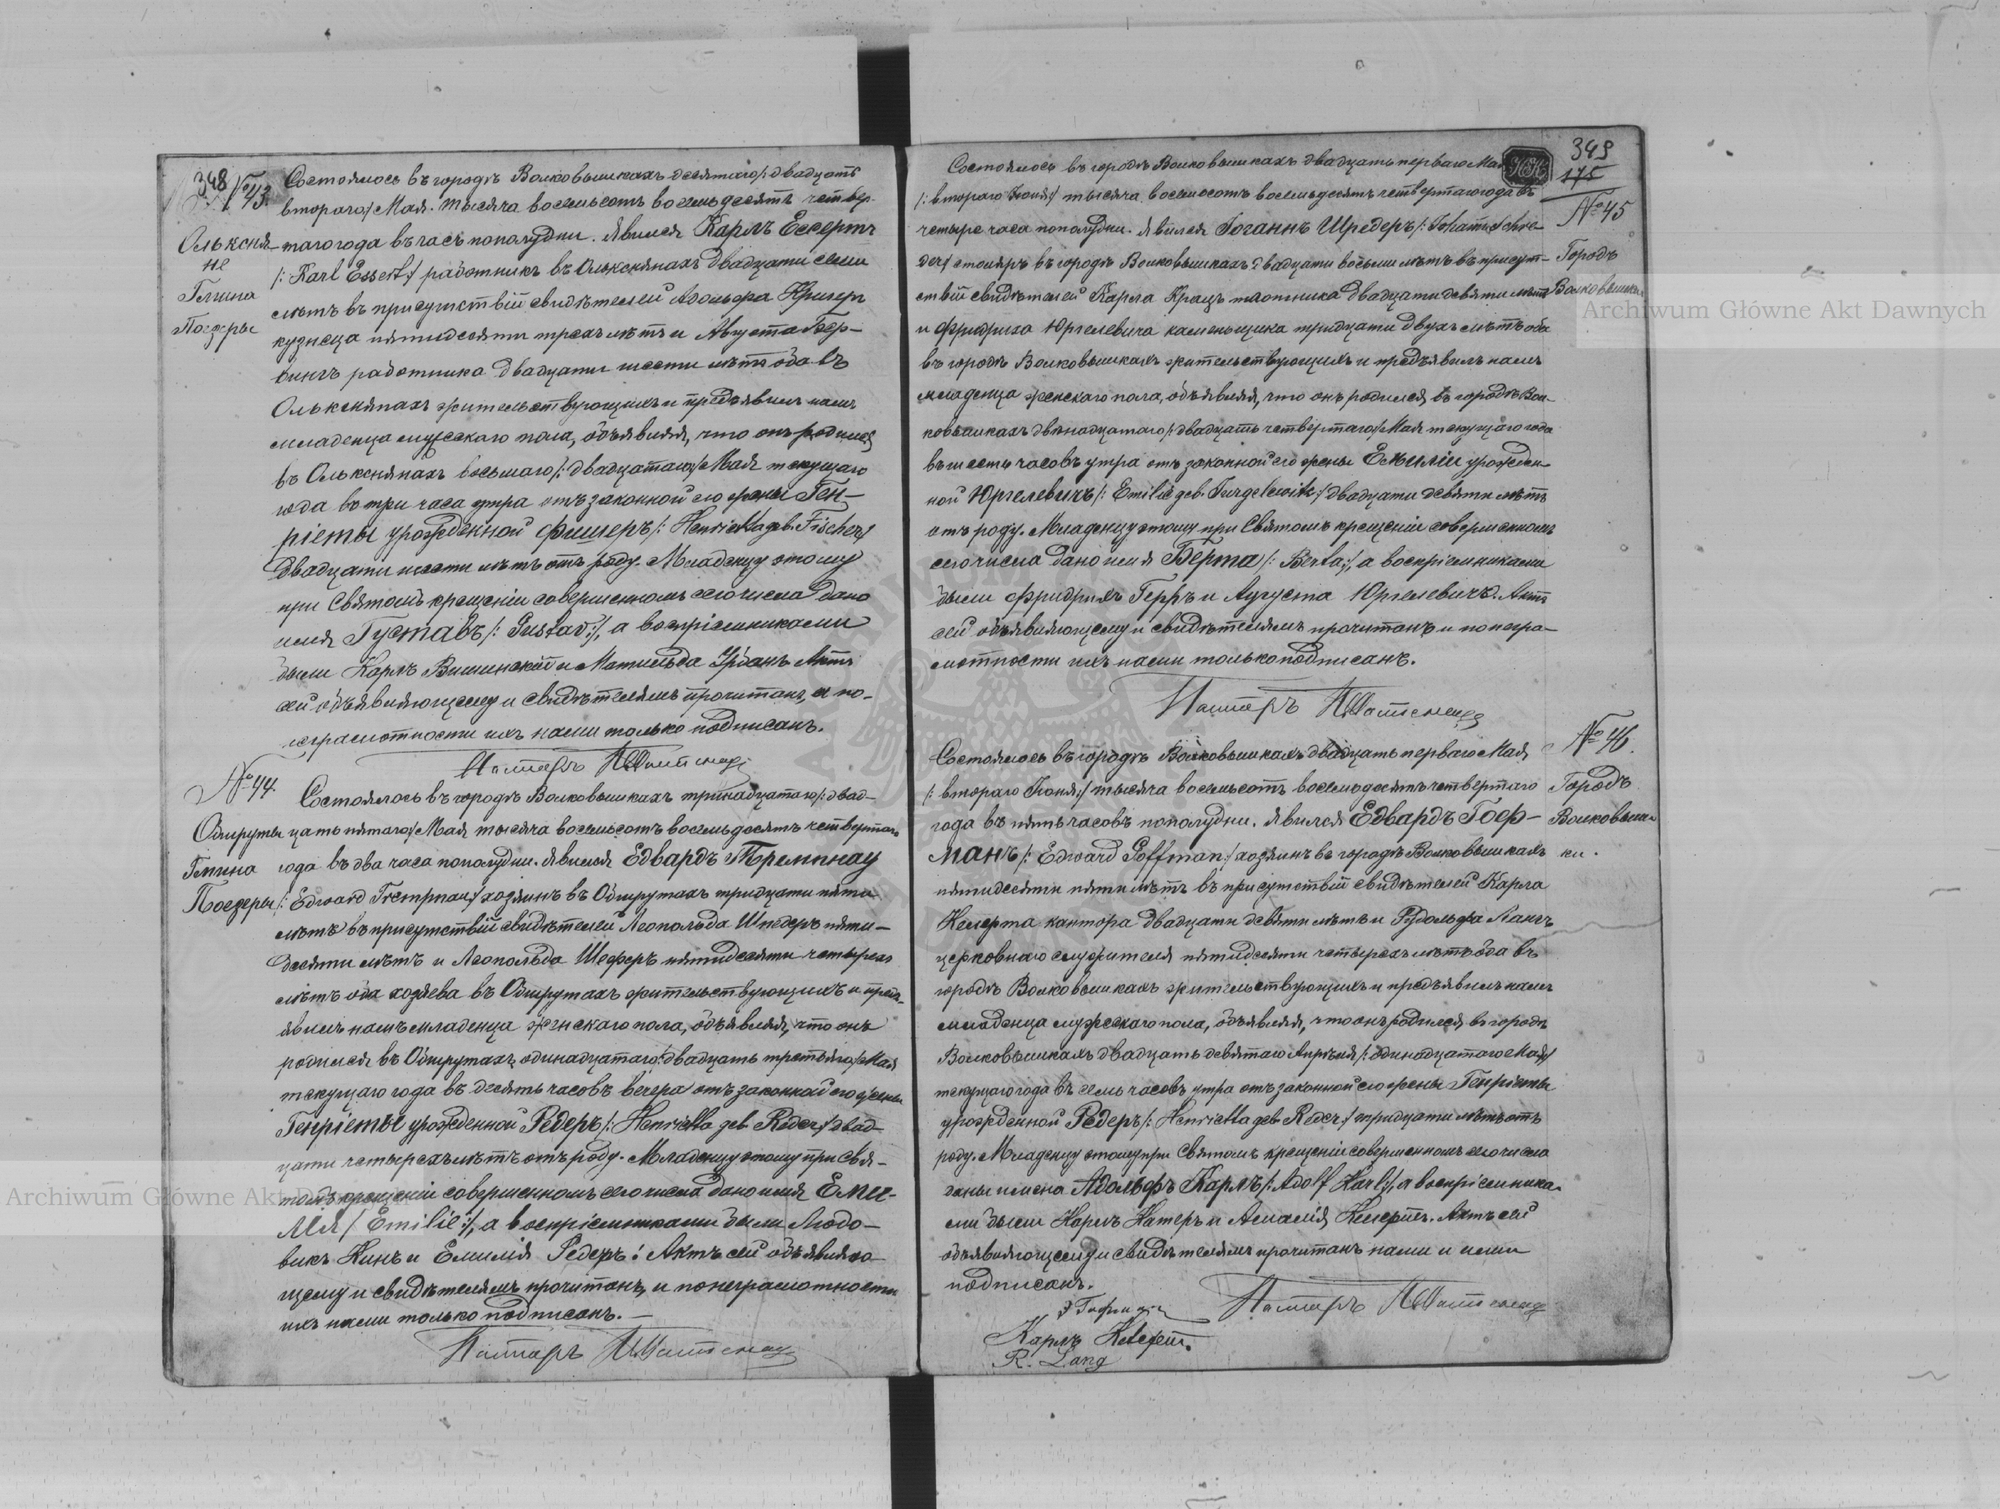 348
№ 43.
Олькснянe
Гмина
Поезеры
Состоялось въ городѣ Волковышкахъ десятаго /: двадцать
втораго:/ Мая. тысяча восемьсотъ восемьдесятъ четвер-
таго года въ часъ пополудни. Явился Карлъ Ессертъ
/: Karl Essert :/ работникъ въ Олькснянахъ двадцати семи
лѣтъ въ присутствіи свидѣтелей Адольфа Кригеръ
кузнеца пятидесяти трехъ лѣтъ и Августа
работника двадцати шести лѣтъ оба въ
Олькснянахъ жительствующихъ и предъявилъ намъ
младенца мужескаго пола, объявляя, что онъ родился
въ Олькснянахъ восьмаго /: двадцатаго:/ Мая текущаго
года въ три часа утра отъ законной его жены Ген-
ріеты урожденной Фишеръ /: Henrietta geb. Fischer :/
двадцати шести лѣтъ отъ роду. Младенцу этому
при Святомъ крещеніи совершенномъ сего числа дано
имя Густавъ /: Gustav :/, а воспріемниками
были Карлъ Вишинскій и Матильда Урбанъ Актъ
сей объявляющему и свидѣтелямъ прочитанъ, и по не-
грамотности ихъ нами только подписанъ.
Пасторъ
№ 44.
Обшруты
Гмина
Поезеры
Состоялось въ городѣ Волковышкахъ тринадцатаго /: двад-
цать пятаго:/ Мая тысяча восемьсотъ восемьдесятъ четвертаго
года въ два часа пополудни. Явился Едвардъ Тремпнау
/: Edward Trempnau :/ хозяинъ въ Обшрутахъ тридцати пяти
лѣтъ въ присутствіи свидѣтелей Леопольда Шнедеръ пяти-
десяти лѣтъ и Леопольда Шеферъ пятидесяти четырехъ
лѣтъ оба хозяева въ Обшрутахъ жительствующихъ и предъ-
явилъ намъ младенца женскаго пола, объявляя, что онъ
родился въ Обшрутахъ одинадцатаго /: двадцать третьяго:/ Мая
текущаго года въ десять часовъ вечера отъ законной его жены
Генріеты урожденной Редеръ /: Henrietta geb Reder :/ двад-
цати четырехъ лѣтъ отъ роду. Младенцу этому при Свя-
томъ крещеніи совершенномъ сего числа дано имя Еми-
лія /: Emilie :/, а воспріемниками были Людо-
викъ Кинъ и Емилія Редеръ. Актъ сей объявляю-
щему и свидѣтелямъ прочитанъ, и по неграмотности
ихъ нами только подписанъ.
Пасторъ
349
175
№ 45
Городъ
Волковышки
Состоялось въ городѣ Волковышкахъ двадцать перваго Мая
/: втораго Іюня:/ тысяча восемьсотъ восемьдесятъ четвертаго года въ
четыре часа пополудни. Явился Іоганнъ Шредеръ /: Johann Schre-
der :/ столяръ въ городѣ Волковышкахъ двадцати восьми лѣтъ въ присут-
ствіи свидѣтелей Карла Крацъ плотника двадцати девяти лѣтъ
и Фридриха Юргелевича каменьщика тридцати двухъ лѣтъ оба
въ городѣ Волковышкахъ жительствующихъ и предъявилъ намъ
младенца женскаго пола, объявляя, что онъ родился въ городѣ Вол-
ковышкахъ двѣнадцатаго /: двадцать четвертаго:/ Мая текущаго года
въ шесть часовъ утра отъ законной его жены Емиліи урожден-
ной Юргелевичъ /: Emilie geb. Jurgelewitz :/ двадцати девяти лѣтъ
отъ роду. Младенцу этому при Святомъ крещеніи совершенномъ
сего числа дано имя Берта /: Berta :/, а воспріемниками
были Фридрихъ Герръ и Августа Юргелевичъ. Актъ
сей объявляющему и свидѣтелямъ прочитанъ и по негра-
мотности ихъ нами только подписанъ.
Пасторъ
№ 46.
Городъ
Волковыш-
ки.
Состоялось въ городѣ Волковышкахъ двадцать перваго Мая
/: втораго Іюня:/ тысяча восемьсотъ восемьдесятъ четвертаго
года въ пять часовъ пополудни. Явился Едвардъ Гоф-
манъ /: Edward Goffman :/ хозяинъ въ городѣ Волковышкахъ
пятидесяти пяти лѣтъ въ присутствіи свидѣтелей Карла
Нейерта кантора двадцати девяти лѣтъ и Рудольфа Лангъ
церковнаго служителя пятидесяти четырехъ лѣтъ оба въ
городѣ Волковышкахъ жительствующихъ и предъявилъ намъ
младенца мужескаго пола, объявляя, что онъ родился въ городѣ
Волковышкахъ двадцать девятаго Апрѣля /: одинадцатаго Мая:/
текущаго года въ семь часовъ утра отъ законной его жены Генріеты
урожденной Редеръ /: Henrietta geb Reder :/ тридцати лѣтъ отъ
роду. Младенцу этому при Святомъ крещеніи совершенномъ сего числа
даны имена Адольфъ Карлъ /: Adolf Karl :/, а воспріемника-
ми были Карлъ Натеръ и Амалія Нейертъ. Актъ сей
объявляющему и свидѣтелямъ прочитанъ нами и ими
подписанъ.
Пасторъ
Карлъ
R. Lang
Archiwum Główne Akt Dawnych
Archiwum Główne Akt Dawnych